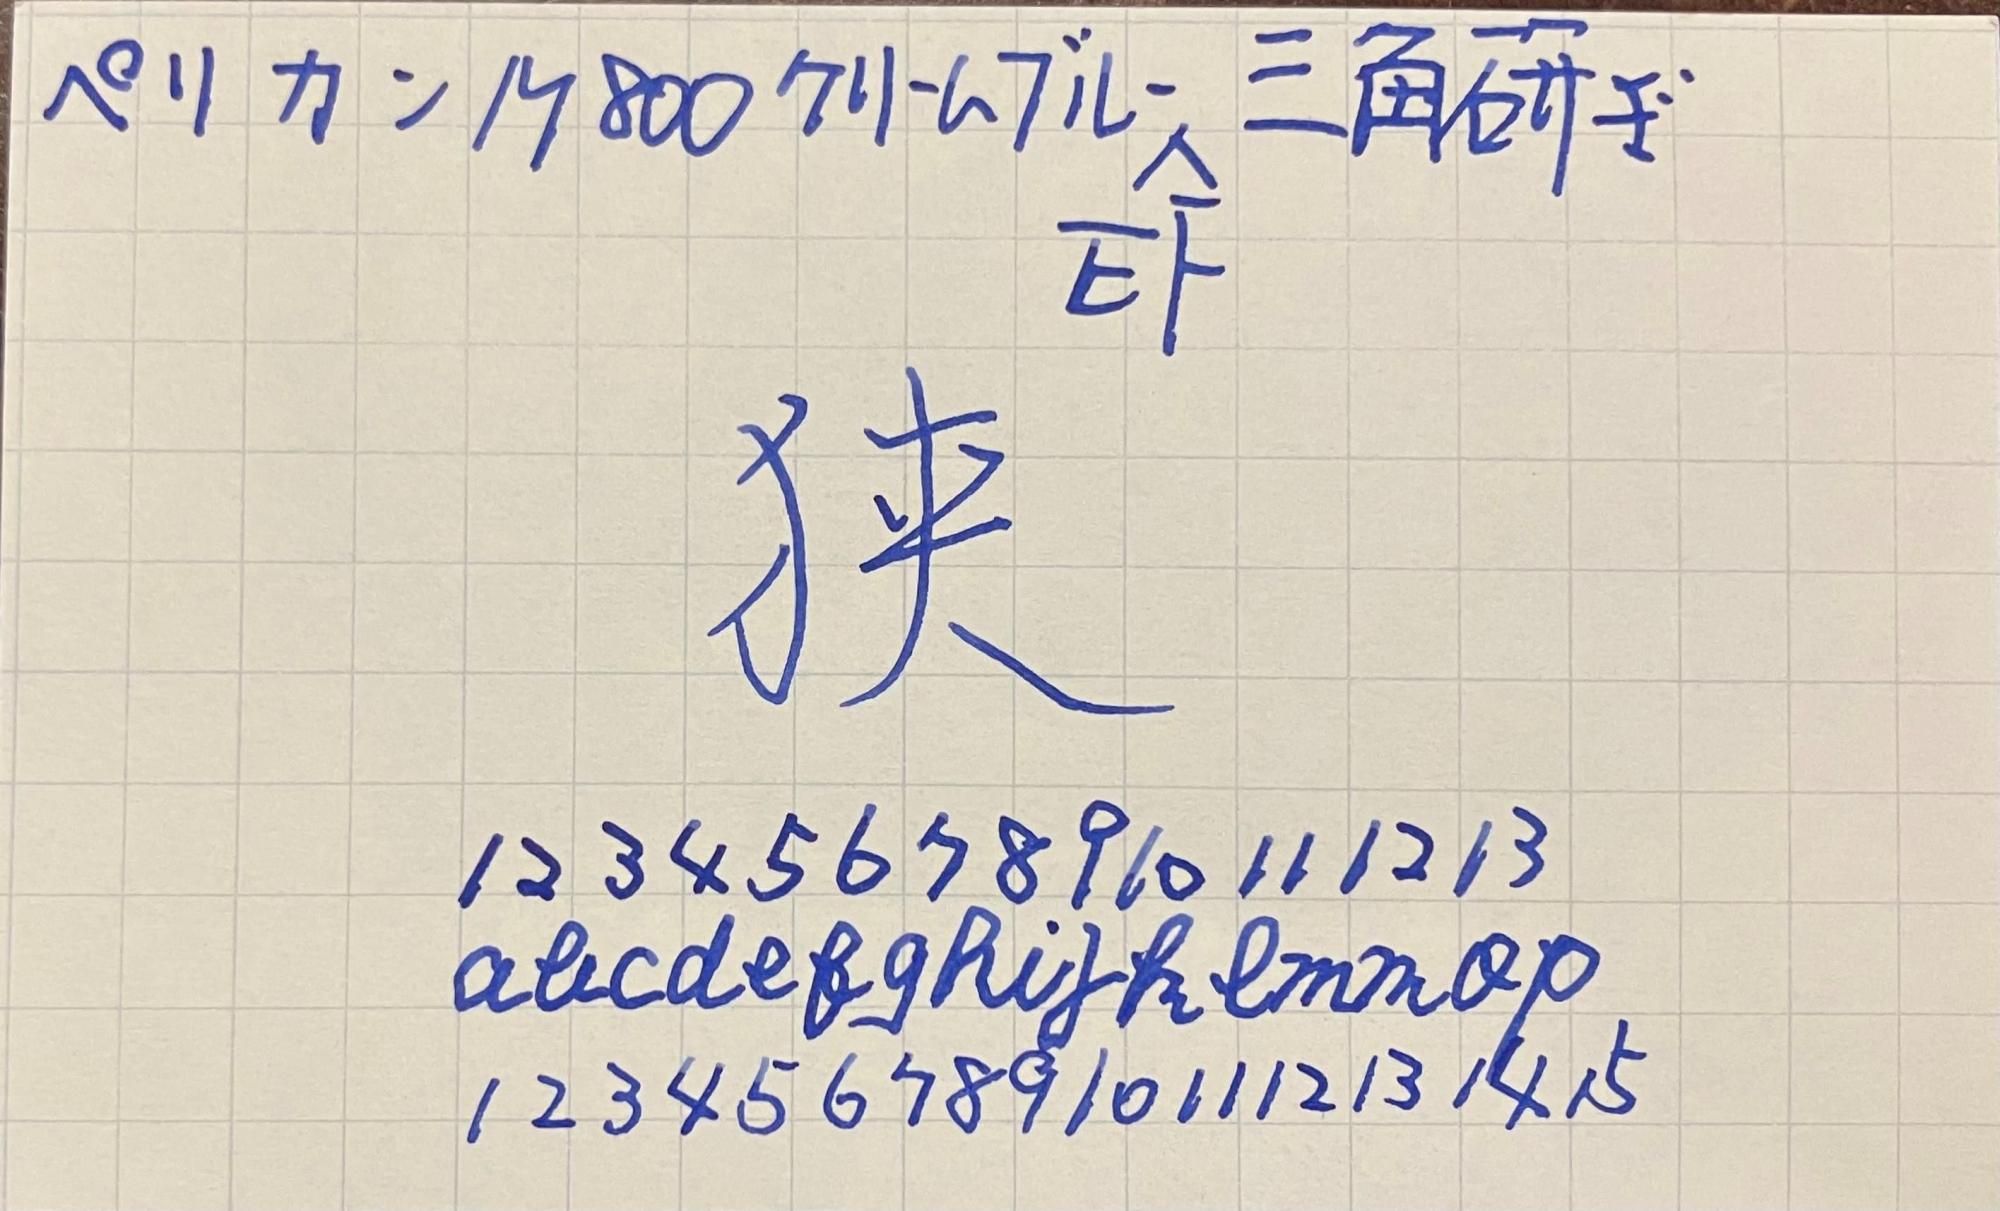 ペリカン M800 クリームブルー 三角研ぎ
EF
狭
1 2 3 4 5 6 7 8 9 10 11 12 13
abcdefghijklmnop
1 2 3 4 5 6 7 8 9 10 11 12 13 14 15